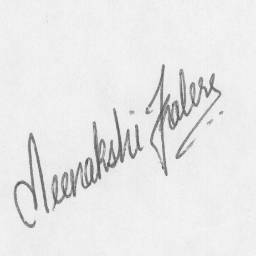 Meenakshi Falere